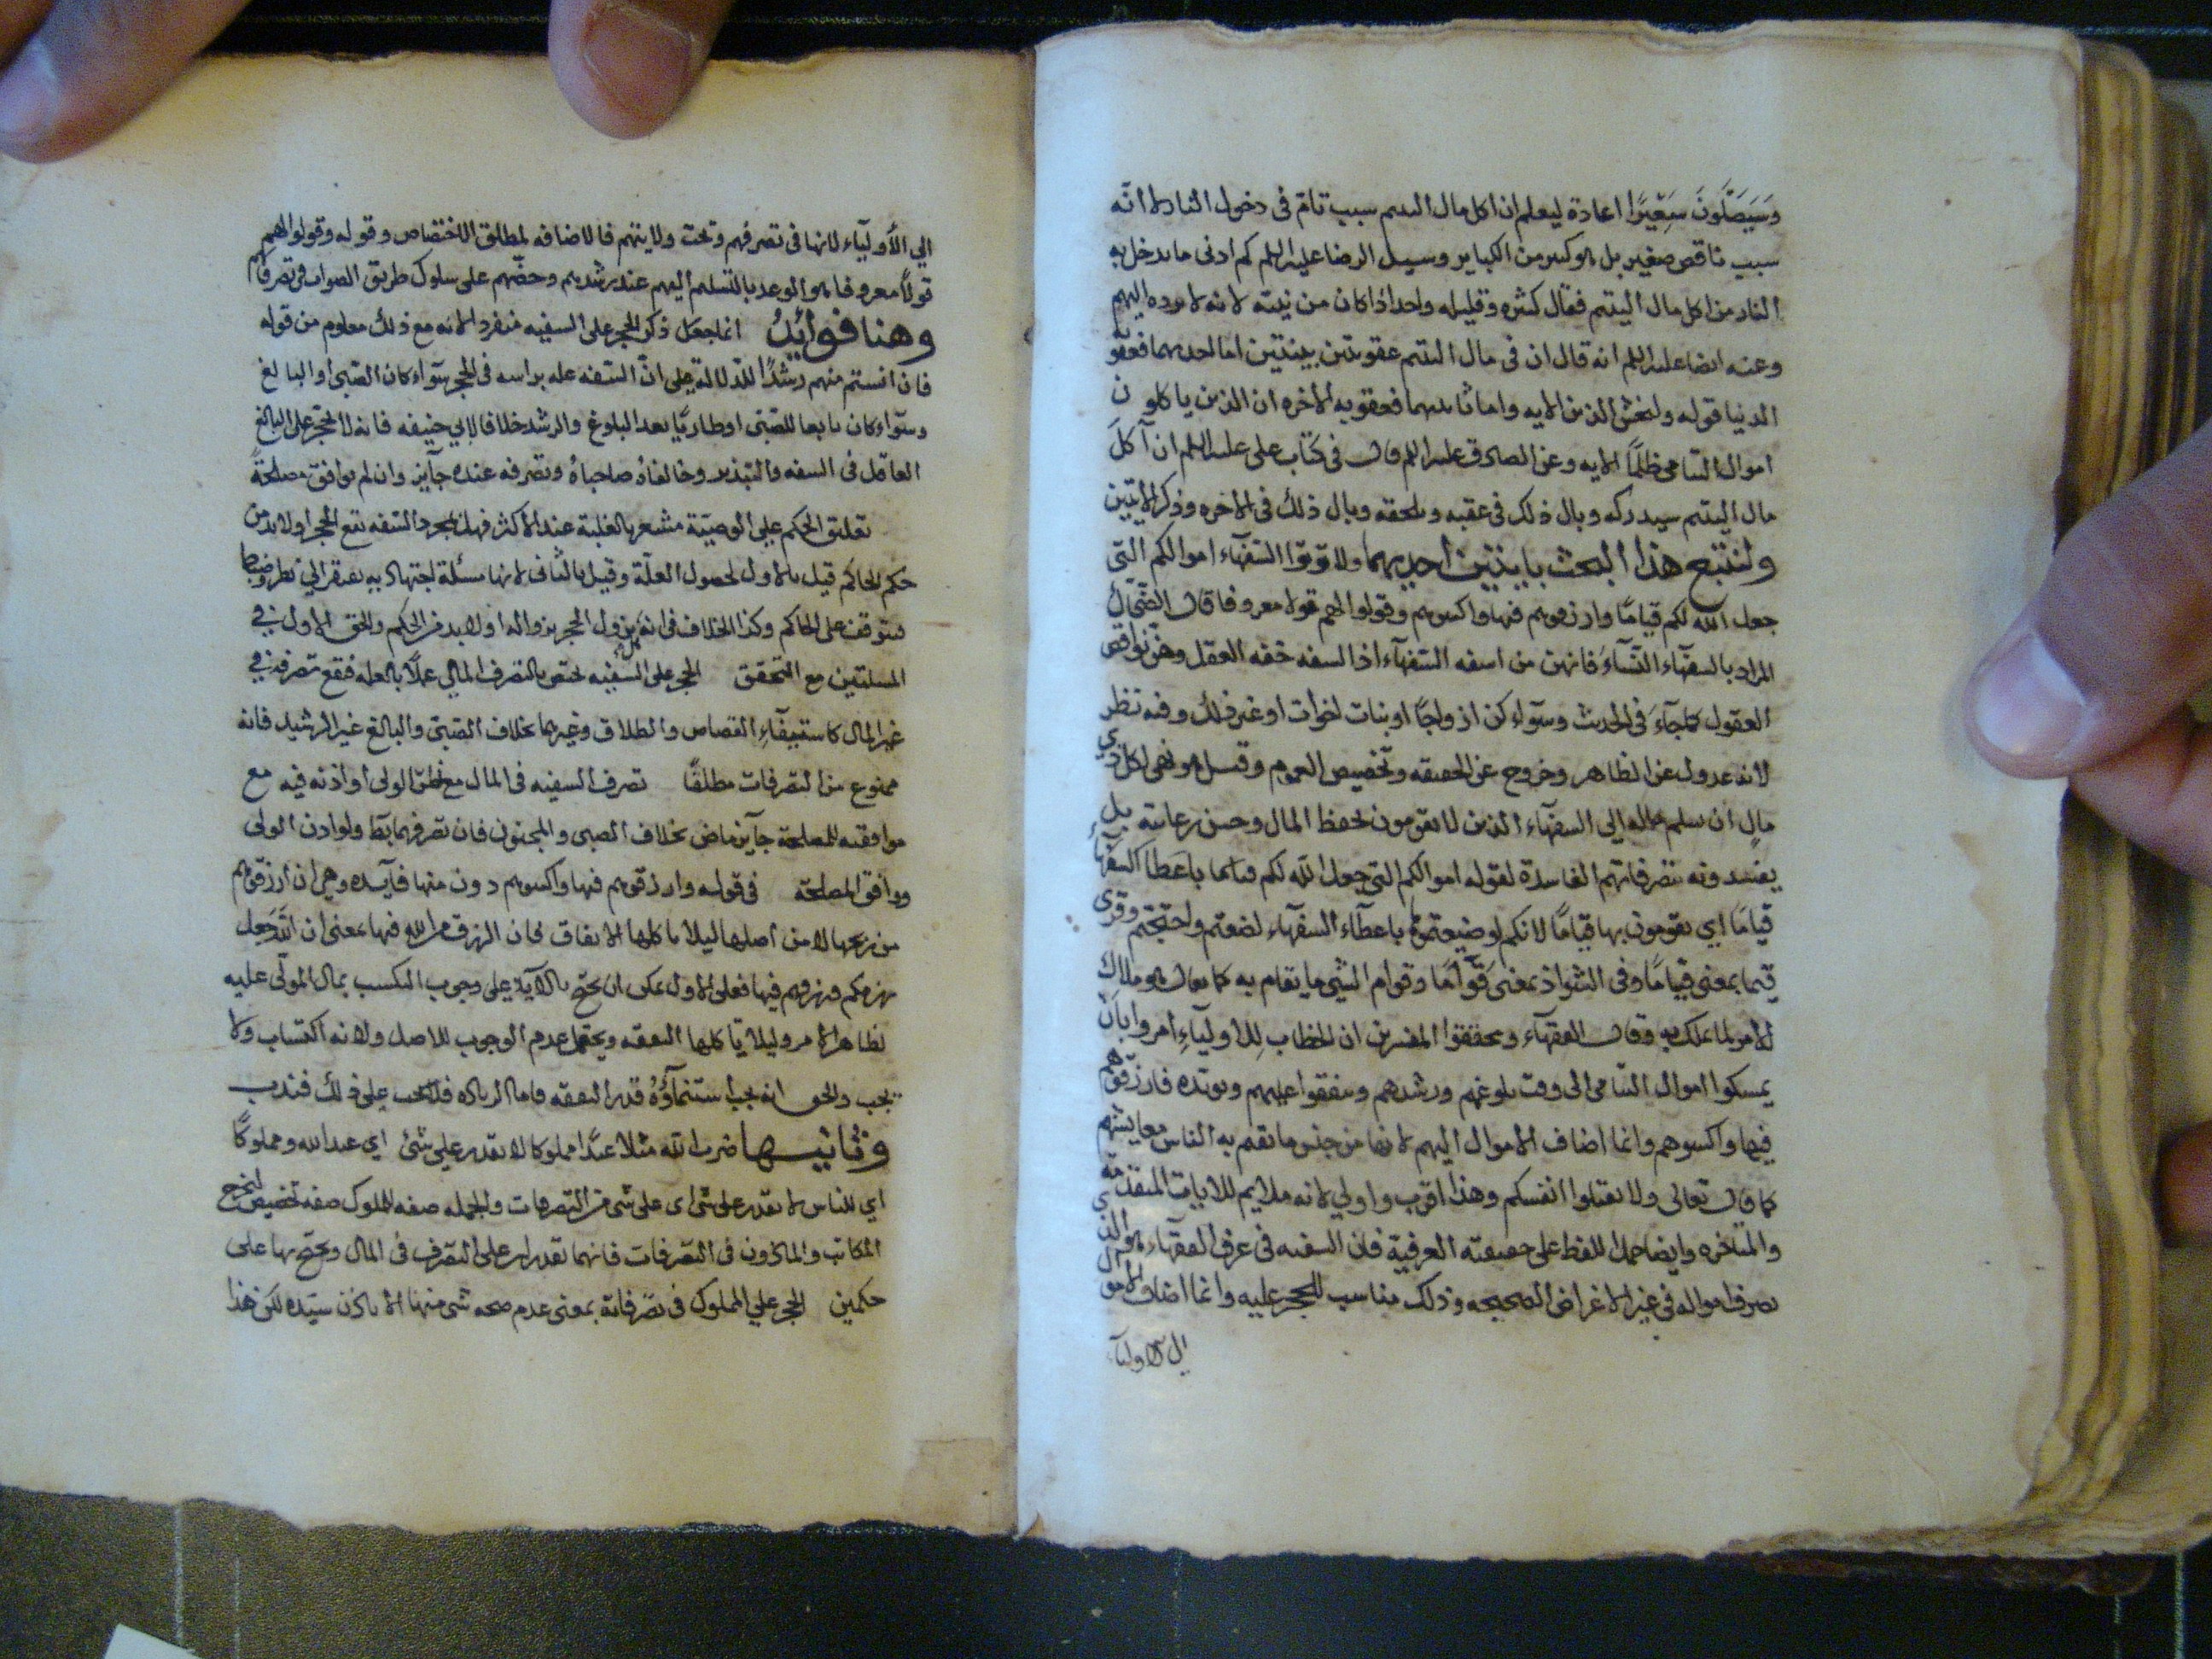 وَسَيَصْلَوْنَ سَعِيْرًا اعادة ليعلم ان اكل مال اليتيم سبب تامّ في دخول النار لا انّه
سبب ناقص صغير بل هو كبير من الكباير وسيل الرضا عليه السلم كم ادنى ما يدخل به
النار من اكل مال اليتيم فقال كثيره وقليله واحد اذا كان من نيته لانه لا يرده اليهم
وعنه ايضا عليه السلم انه قال ان في مال اليتيم عقوبتين بينتين اما احديهما فعقوبة
الدنيا قوله وليخش الذين الايه واما ثانيهما فعقوبه الاخره ان الذين ياكلون
اموال اليتامى ظلمًا الايه وعن الصادق عليه السلم قال في كتاب على عليه السلم ان آكلَ
مال اليتيم سيدركه وبال ذلك في عقبه ويلحقه وبال ذلك في الاخره وذكر الايتين
ولنتبع هذا البحث بايتين احديهما ولا تؤتوا السفهاء اموالكم التى
جعل الله لكم قيامًا وارزقوهم فيها واكسوهم وقولوا لهم قولا معروفا قال الضّحّاك
المراد بالسفهآء النسآء فانهن من اسفه السفهآء اذ السفه خفه العقل وهن نواقص
العقول كما جآء في الحديث وسوآء كن ازواجًا او بنات اخوات او غير ذلك وفيه نظر
لانه عدول عن الظاهر وخروج عن الحقيقه وتخصيص العموم وقيل هو نهى لكل ذي
مالٍ ان يسلم ماله الي السفهآء الذين لا يقومون بحفظ المال وحسن رعايته بل
يفسدونه بتصرفاتهم الفاسدة لقوله اموالكم التي جعل الله لكم قياما باعطا السفهآء
قيامًا اي تقومون بها قيامًا لانكم لو ضيعتموها باعطآء السفهآء لضعتم واحتجتم وقرى
قيما بمعنى قيامًا وفي الشواذ بمعنى قوامًا وقوام الشي ما يقام به كما يقال هو ملاك
الامر لما يملك به وقال الفقهآء ومحققوا المفسرين ان الخطاب للاوليآء امروا بان
يمسكوا اموال اليتامى الى وقت بلوغهم ورشدهم وينفقوا عليهم ويؤيده فارزقوهم
فيها واكسوهم وانما اضاف الاموال اليهم لانها من جنس ما تقيم به الناس معايشهم
كما قال تعالى ولا تقتلوا انفسكم وهذا اقرب واولي لانه ملايم للايات المتقدمة
والمتاخره وايضا حمل اللفظ على حقيقته العرفية فان السفيه في عرف الفقهآء هو الذي
يصرف امواله في غير الاغراض الصحيحه وذلك مناسب للحجر عليه وانما اضاف الاموال
الي الاوليآء
الي الأوليآء لانها في تصرفهم وتحت ولايتهم فالاضافه لمطلق الاختصاص وقوله وقولوا لهم
قولاً معروفا هو الوعد بالتسليم اليهم عند رشدهم وحضّهم على سلوك طريق الصواب في تصرفاتهم
وهنا فوائِدُ انما جعل ذكر الحجر على السفيه منفردا لانه مع ذلك معلوم من قوله
فان انستم منهم رشدًا للدلالة على انّ السّفه عله براسه في الحجر سوآء كان الصّبى او البالغ
وسوآء كان تابعا للصّبى او طاريًا بعد البلوغ والرشد خلافا لابي حنيفه فانه لا يحجر على البالغ
العاقل في السفه والتبذير وخالفاهُ صاحباهُ وتصرفه عنده جآيز وان لم يوافق مصلحةً
تعليق الحكم علي الوصيّة مشعر بالغلبة عند الاكثر فهل بمجرد السّفه يقع الحجر او لا بد من
حكم الحاكم قيل بالاول لحصول العلّة وقيل بالثانى لانها مسئلة اجتهادييه يفتقر الي نظر وضبط
فيتوقف على الحاكم وكذا الخلاف في انه يزول الحجر بزواله او لا بد من الحكم والحق الاول في
المسئلتين مع التحقق الحجر على السّفيه يختص بالتصرف المالي عملًا بالعله فيقع تصرفه في
غير المال كاستيفآءِ القصاص والطلاق وغيرهما بخلاف الصّبى والبالغ غير الرشيد فانه
ممنوع من التصرفات مطلقًا تصرف السفيه في المال مع نطق الولى او اذنه فيه مع
موافقته للمصلحة جآيز ماض بخلاف الصبى والمجنون فان تصرفهما باطل ولو اذن الولى
ووافق المصلحة في قوله وارزقوهم فيها واكسوهم دون منها فآيده وهي ان ارزقوهم
من ربحها لا من اصلها ليلا ياكلها الانفاق فان الرزق من الله فيها بمعنى ان اللّه جعل
رزقكم ورزقهم فيها فعلى الاول يمكن ان يحتج بالآية علي وجوب التكسب بمال المولّى عليه
لظاهر الامر وليلا تاكلها النفقه ويحتمل عدم الوجوب للاصل ولانه اكتساب ولا
يجب والحق انه يجب استنمآؤهُ قدر النفقه فاما الزياده فلا يجب علي ذلك فندب
وثانيها ضرب اللّه مثلا عبدًا مملوكا لا يقدر علي شئ اي عبد الله ومملوكًا
اي للناس لا يقدر على شئ اى على شئ من التصرفات والجمله صفه لمملوك صفه تخصيص ليخرج
المكاتب والماذون في التصرفات فانهما يقدران على التصرف في المال ويحتج بها على
حكمين الحجر علي المملوك في تصرفاته بمعنى عدم صحه شئ منها الا باذن سيّده لكن هذا